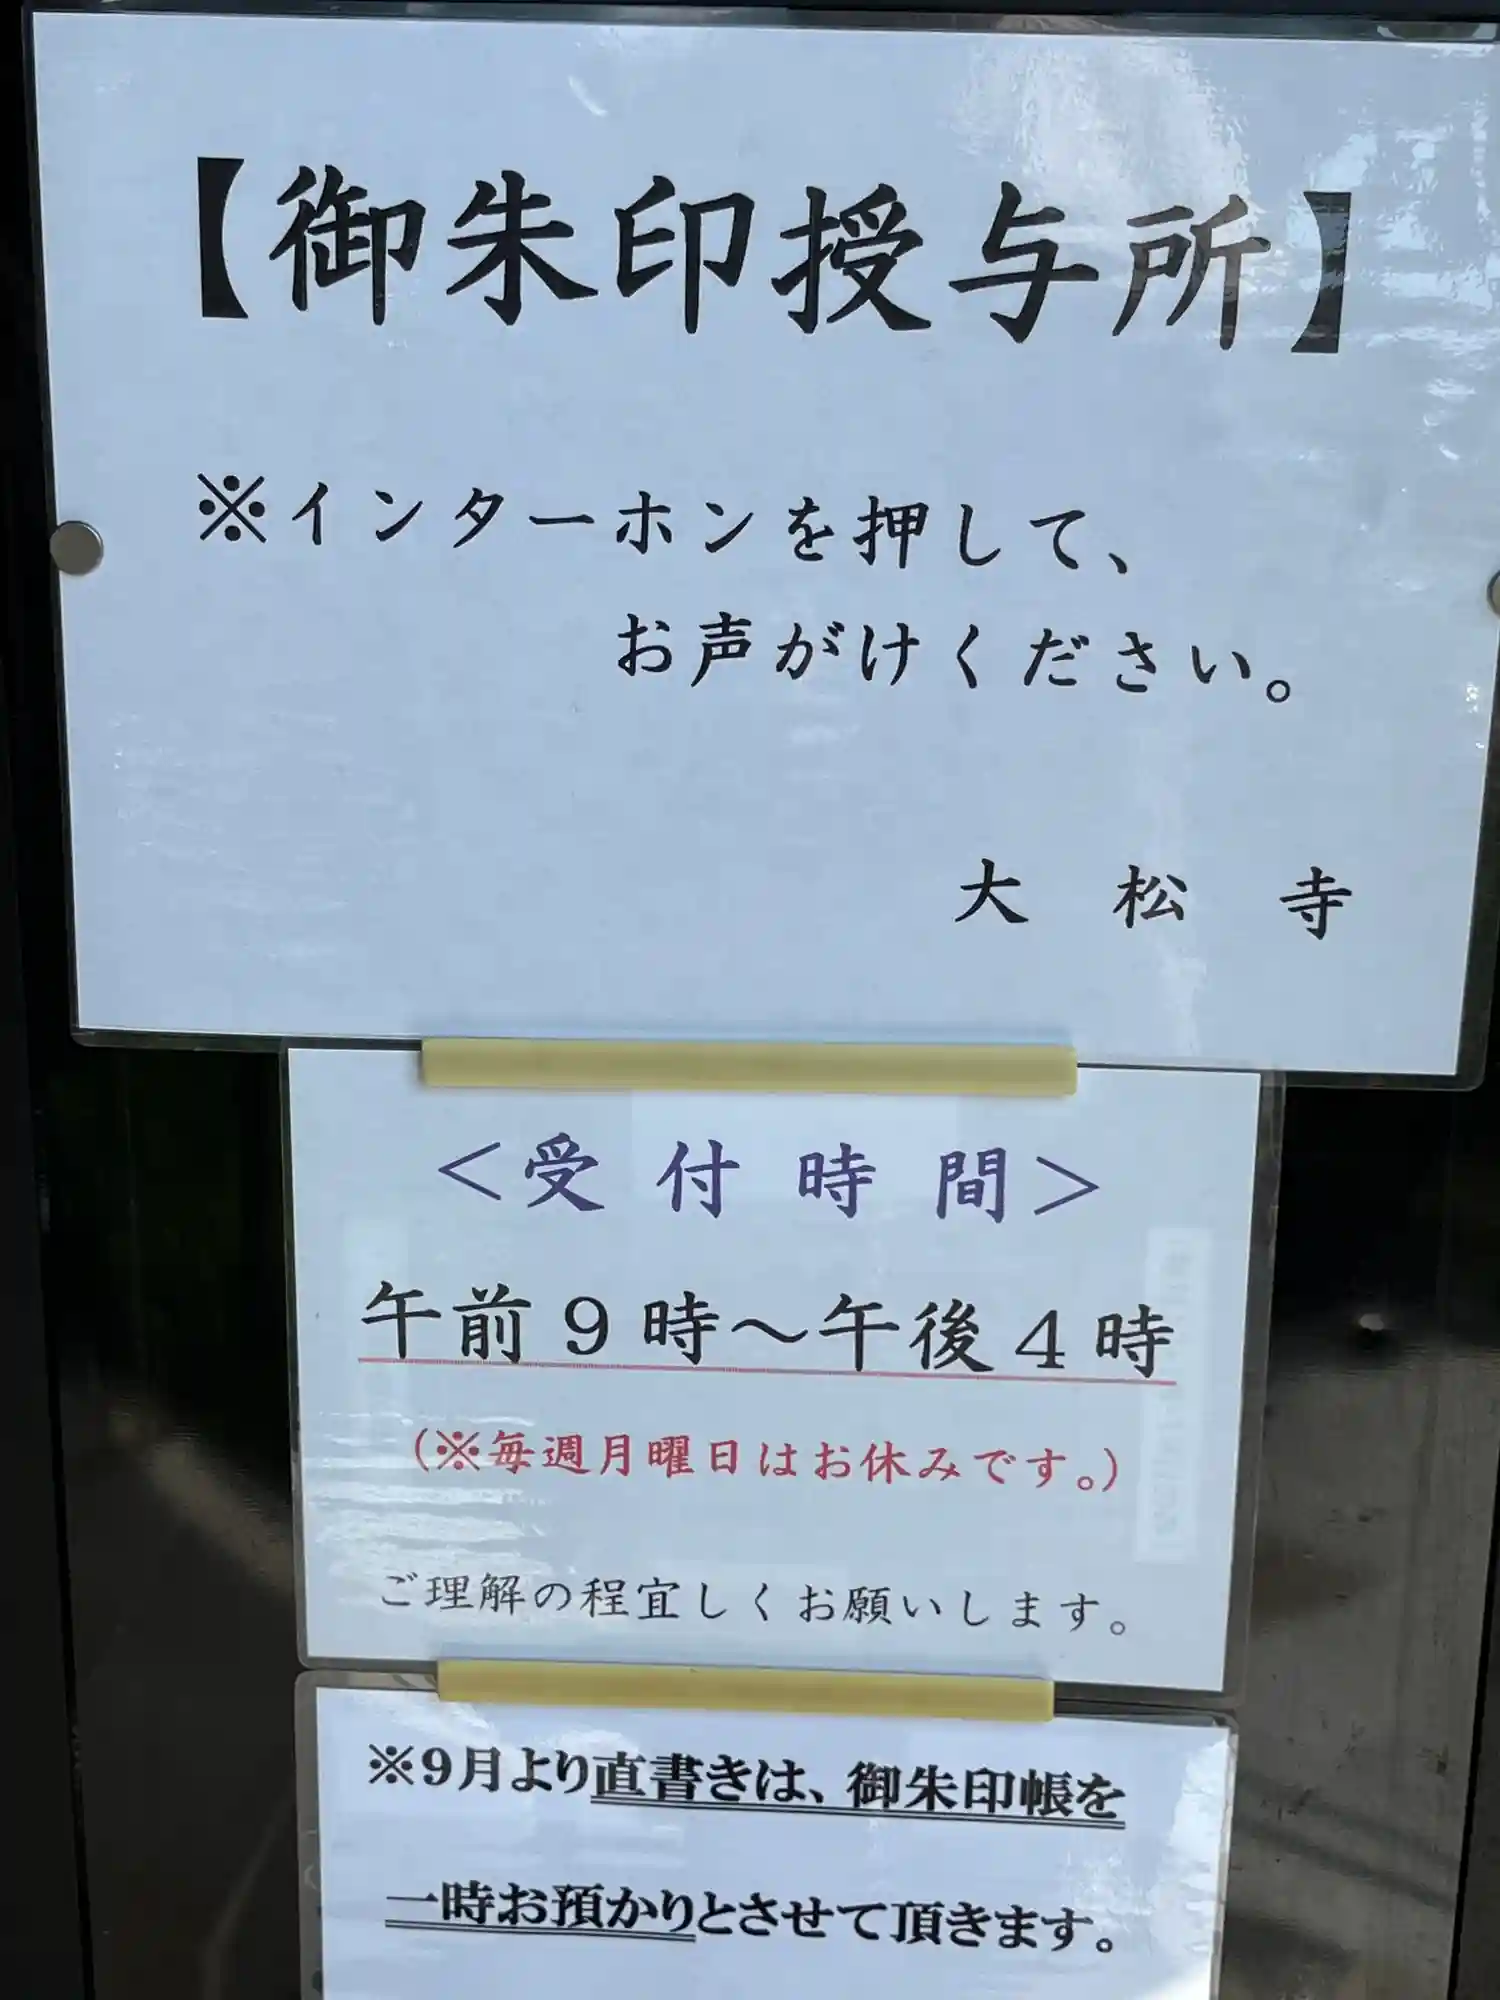 【御朱印授与所】
※インターホンを押して、
お声がけください。
大 松 寺
＜受 付 時 間＞
午前９時～午後４時
（※毎週月曜日はお休みです。）
ご理解の程宜しくお願いします。
※9月より直書きは、御朱印帳を
一時お預かりとさせて頂きます。